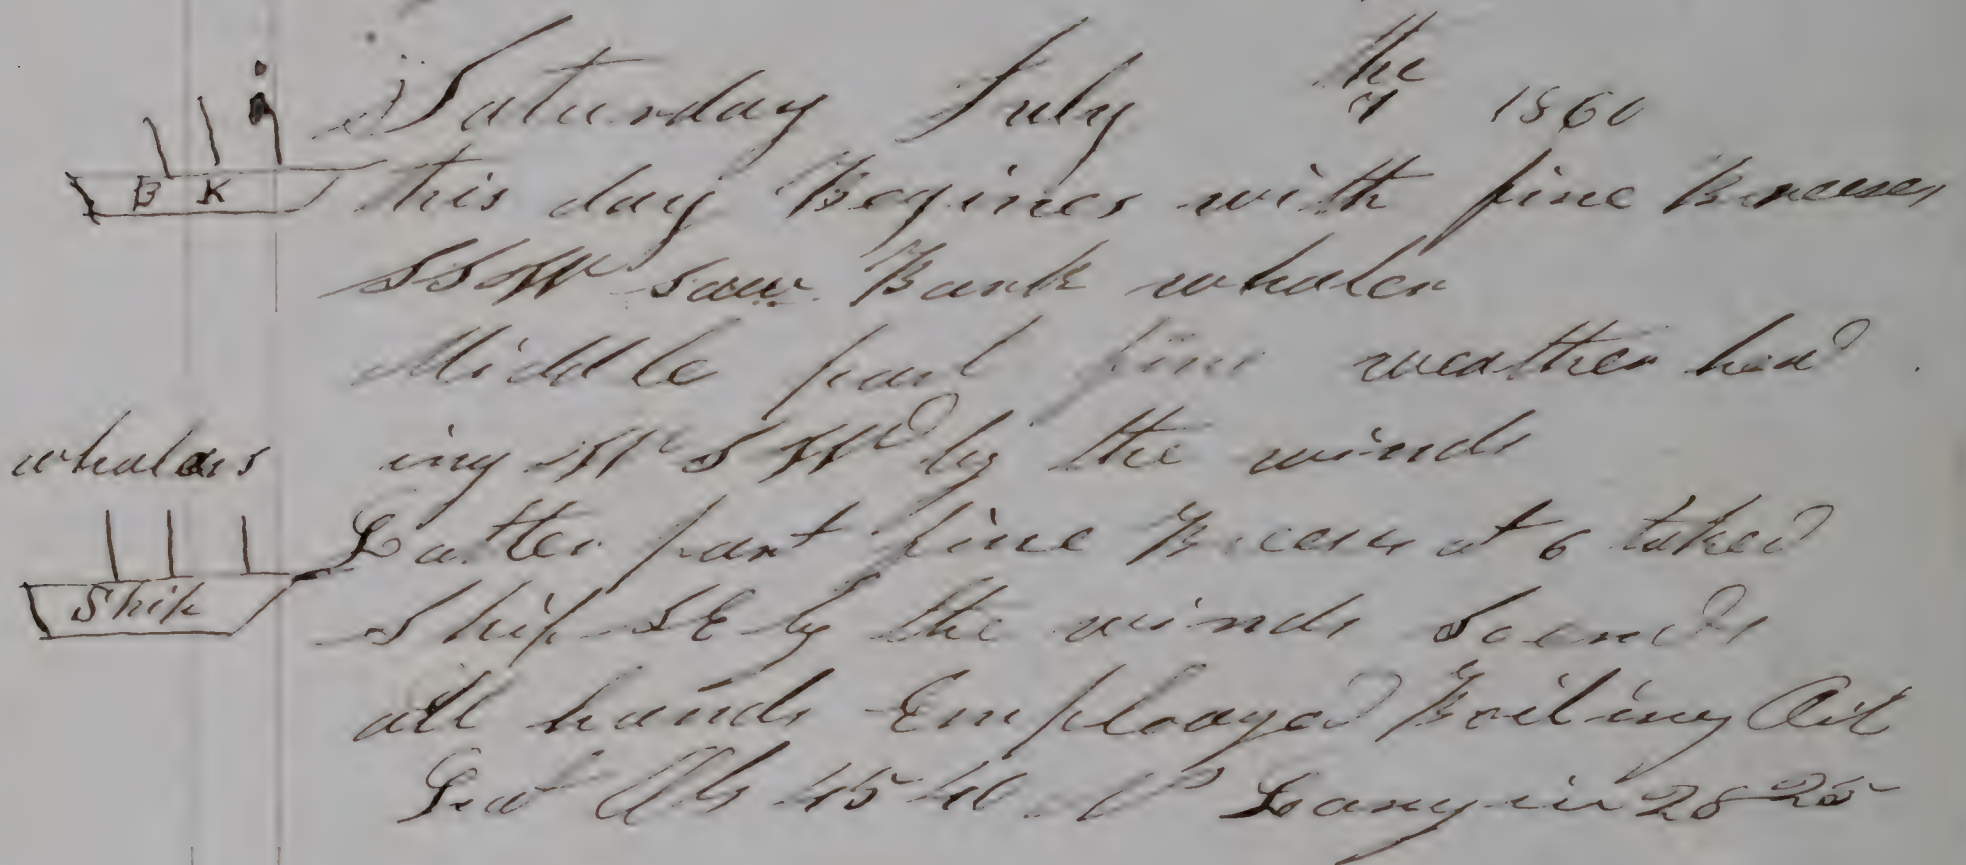 Saturday July the 7 1860
B K
this day Begines with fine Breeses
SSW saw Bark whaler
Middle part fine weather head
whalers
ing W S W by the winds
Latter part fine Breeses at 6 taked
Ship
Ship SE by the winds
all hands Employed Boiling Oil
45 40 Longin 28 25